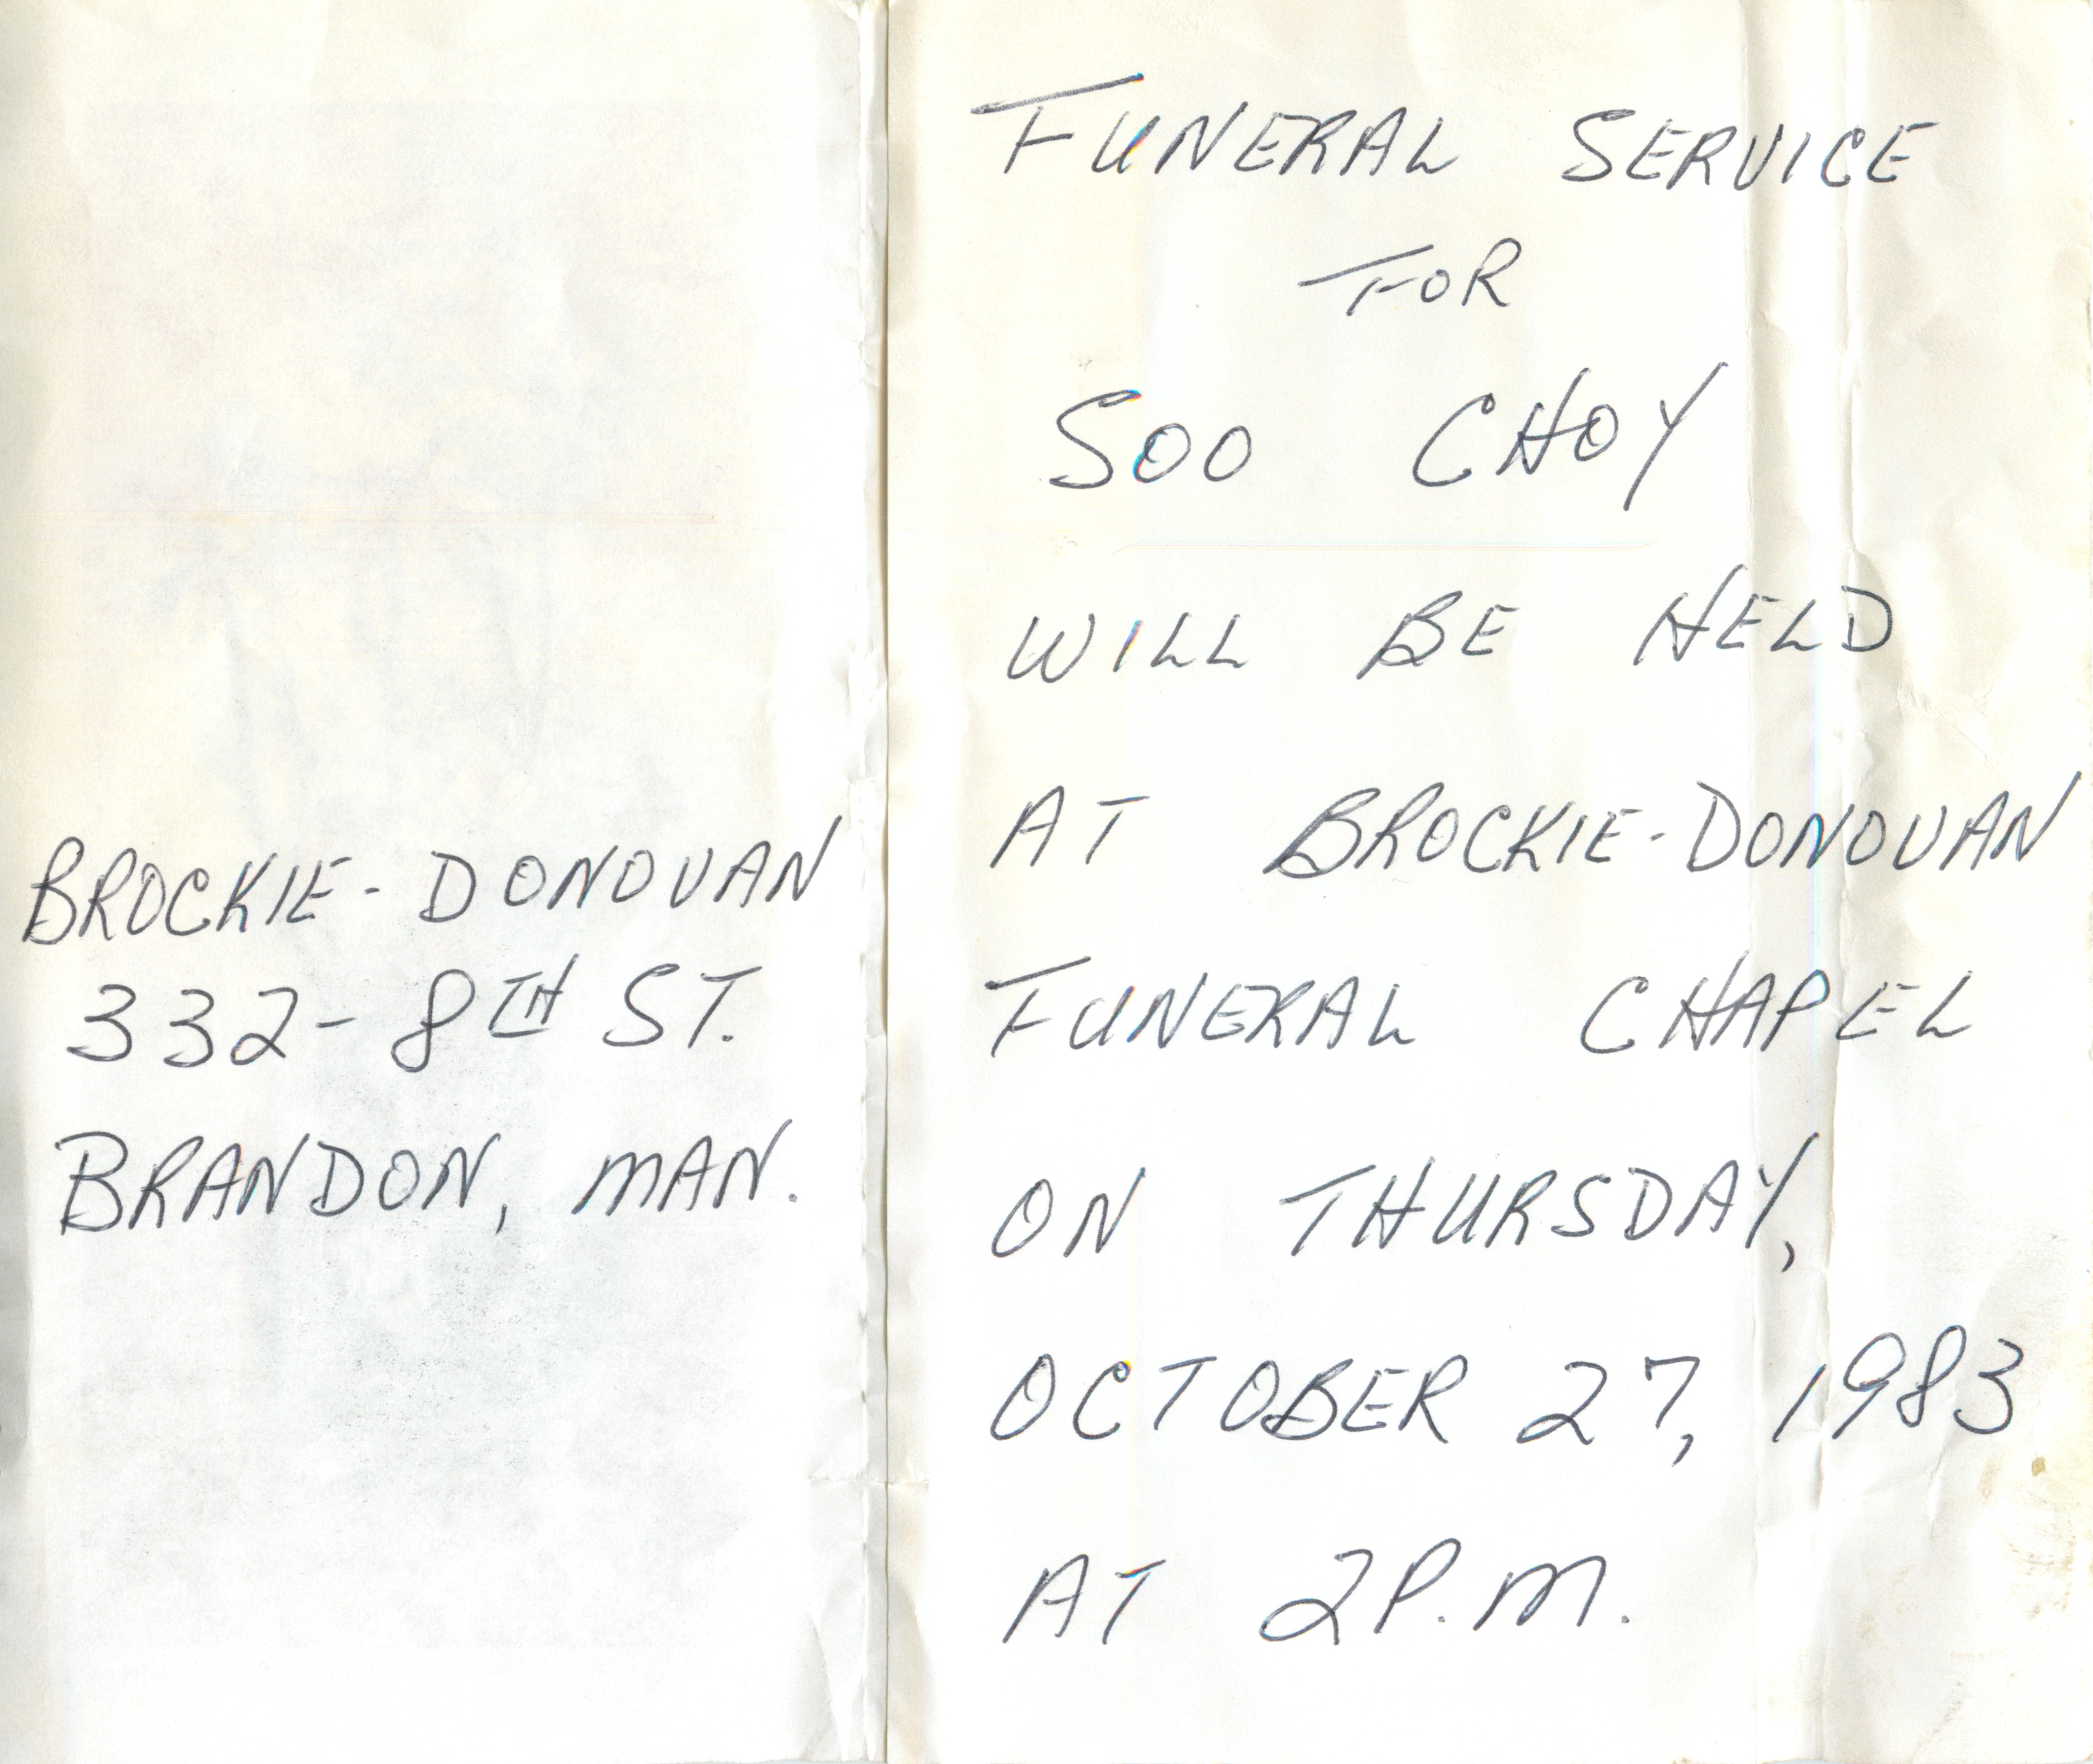 BROCKIE-DONOVAN
332-8TH ST.
BRANDON, MAN.
FUNERAL SERVICE
FOR
SOO CHOY
WILL BE HELD
AT BROCKIE-DONOVAN
FUNERAL CHAPEL
ON THURSDAY,
OCTOBER 27, 1983
AT 2 P.M.